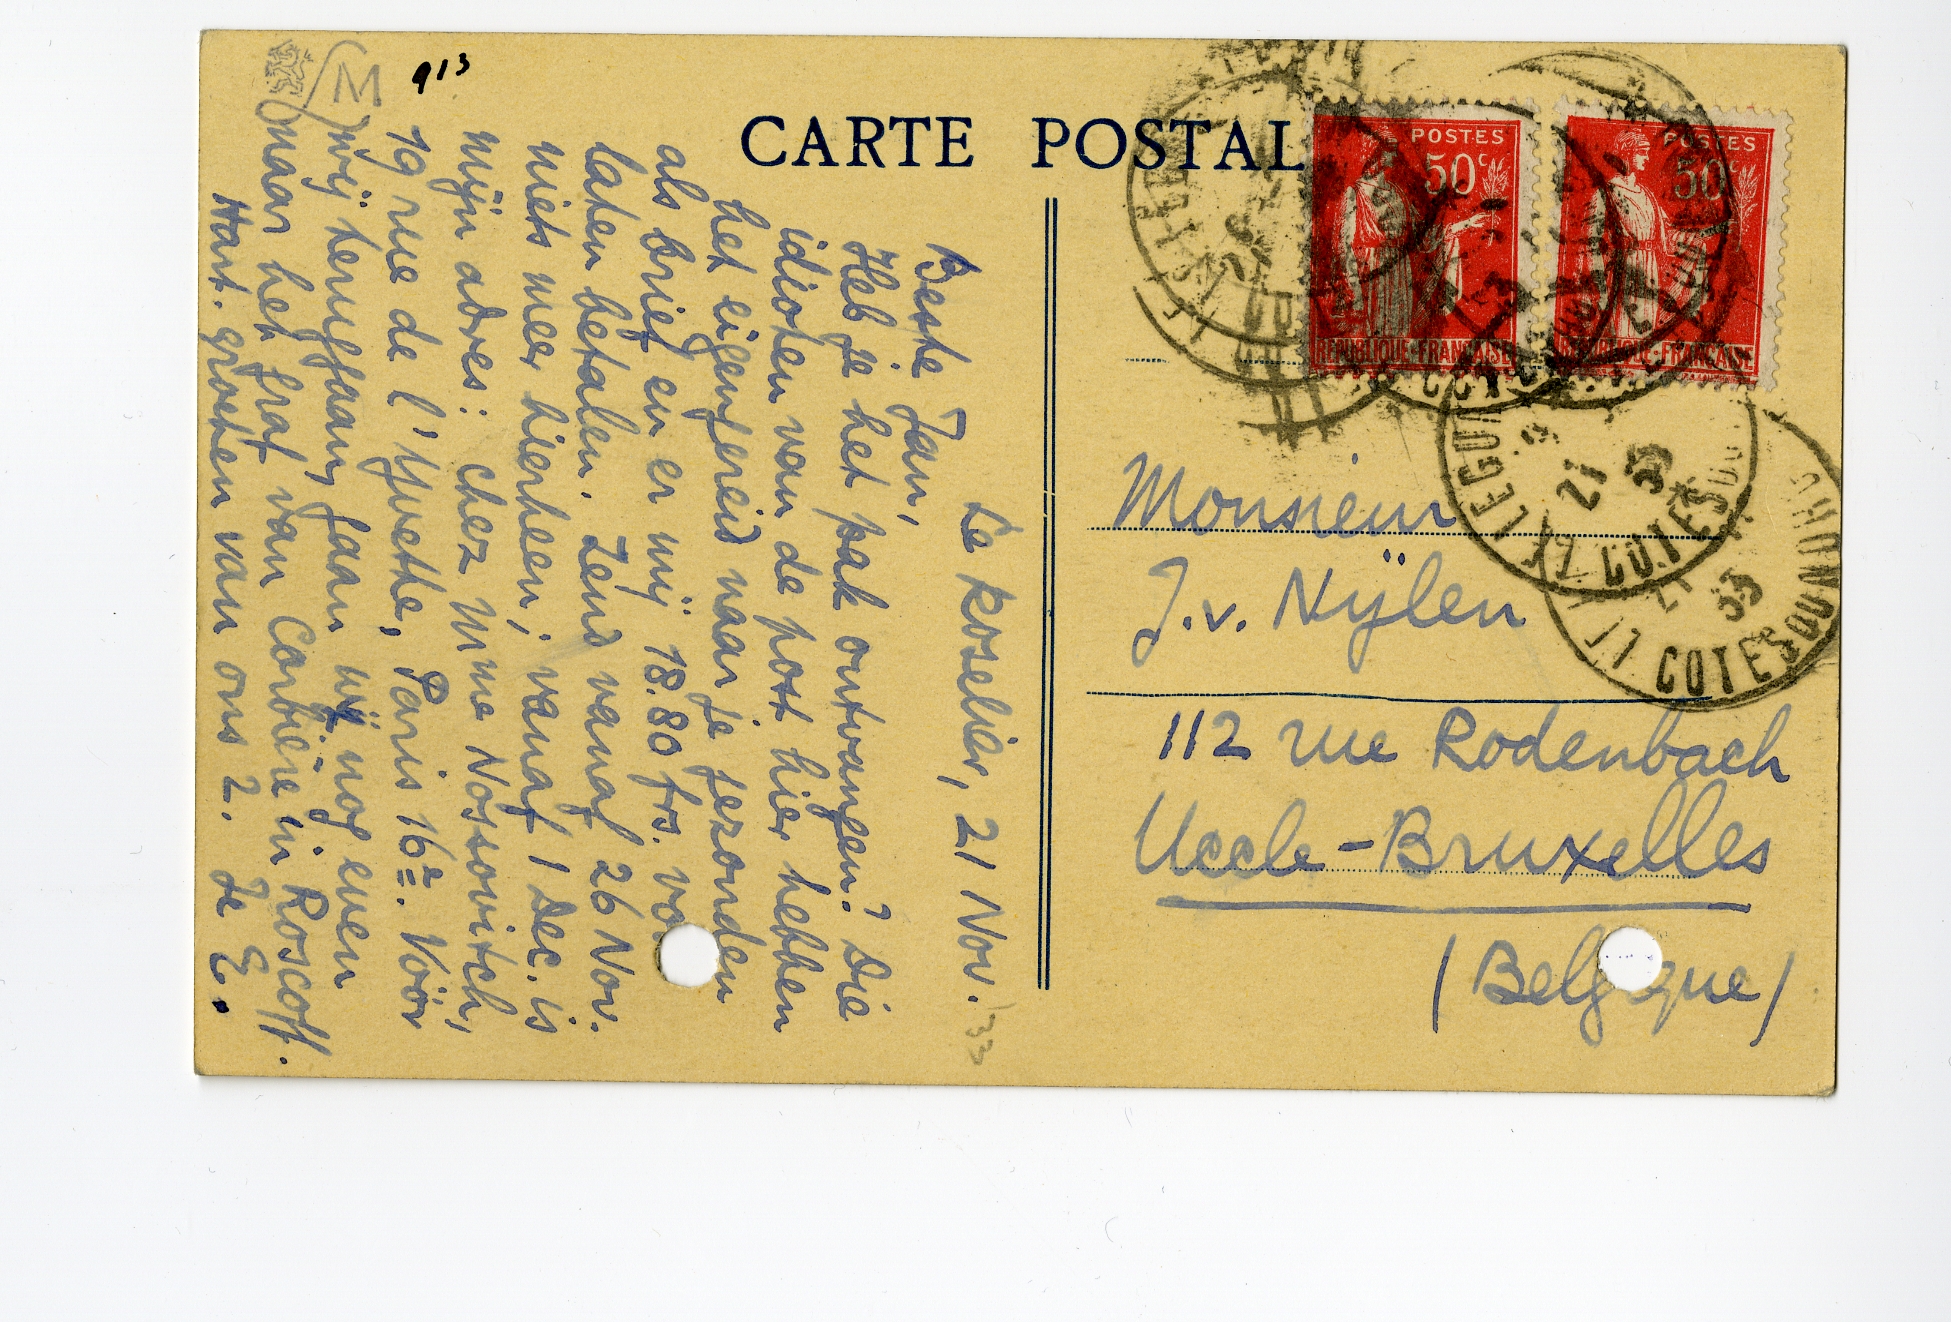 913
M
CARTE POSTAL
POSTES
50c
REPUBLIQUE FRANÇAISE
POSTES
50
REPUBLIQUE FRANÇAISE
21
33
COTES DU
COTES DU
33
Le Roselier, 21 Nov. '33
Beste Jan,
Heb je het pak ontvangen? Die
idioten van de post hier hebben
het eigengereid naar je gezonden
als brief en er mij 18.80 frs. vo
laten betalen. Zend vanaf 26 Nov.
niets meer hierheen; vanaf 1 Dec. is
mijn adres: chez Mme Nossovitch,
19 rue de l'Yvette, Paris 16e. Vóór
mij teruggaan gaan wij nog even
naar het graf van Corbière in Roscoff.
Hart. groeten van ons 2. Je E.
Monsieur
J. v. Nijlen
112 rue Rodenbach
Uccle-Bruxelles
(Belgique)